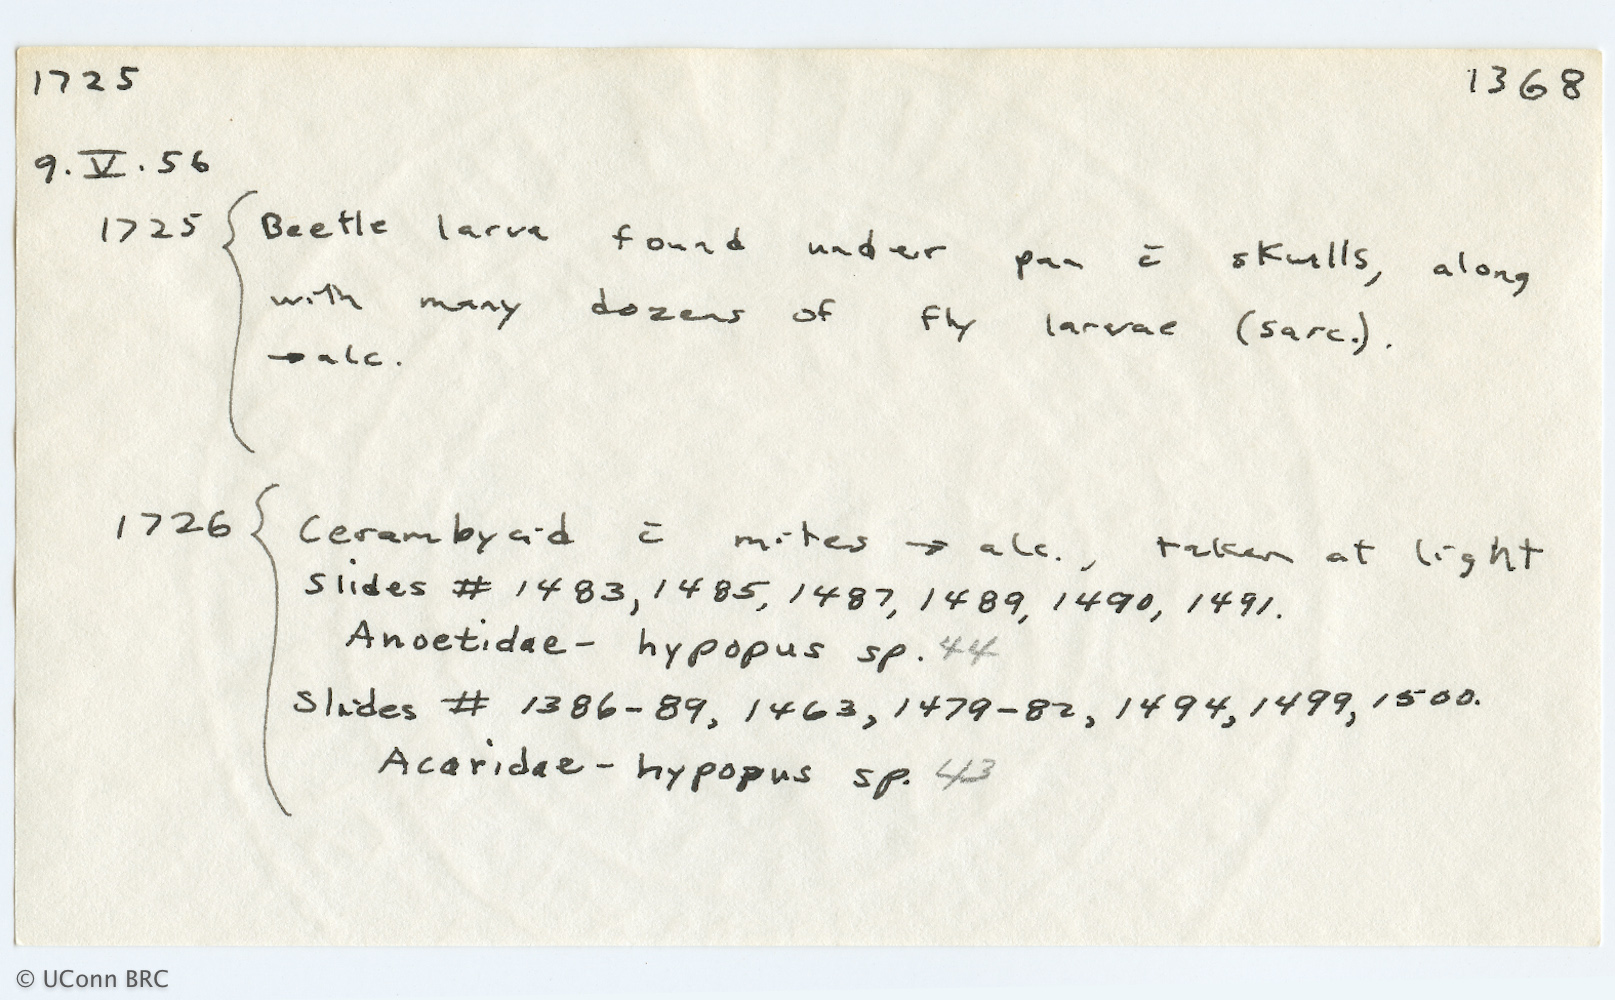 1725 1368
9.V.56
1725 { Beetle larva found under pan c̄ skulls, along
with many dozens of fly larvae (sarc.).
→ alc.
1726 { Cerambycid c̄ mites → alc., taken at light
Slides # 1483, 1485, 1487, 1489, 1490, 1491.
Anoetidae - hypopus sp. 44
Slides # 1386-89, 1463, 1479-82, 1494, 1499, 1500.
Acaridae - hypopus sp. 43
© UConn BRC